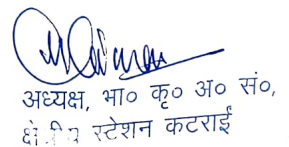 अध्यक्ष, भा० कृ० अ० सं०,
क्षेत्रीय स्टेशन कटराईं